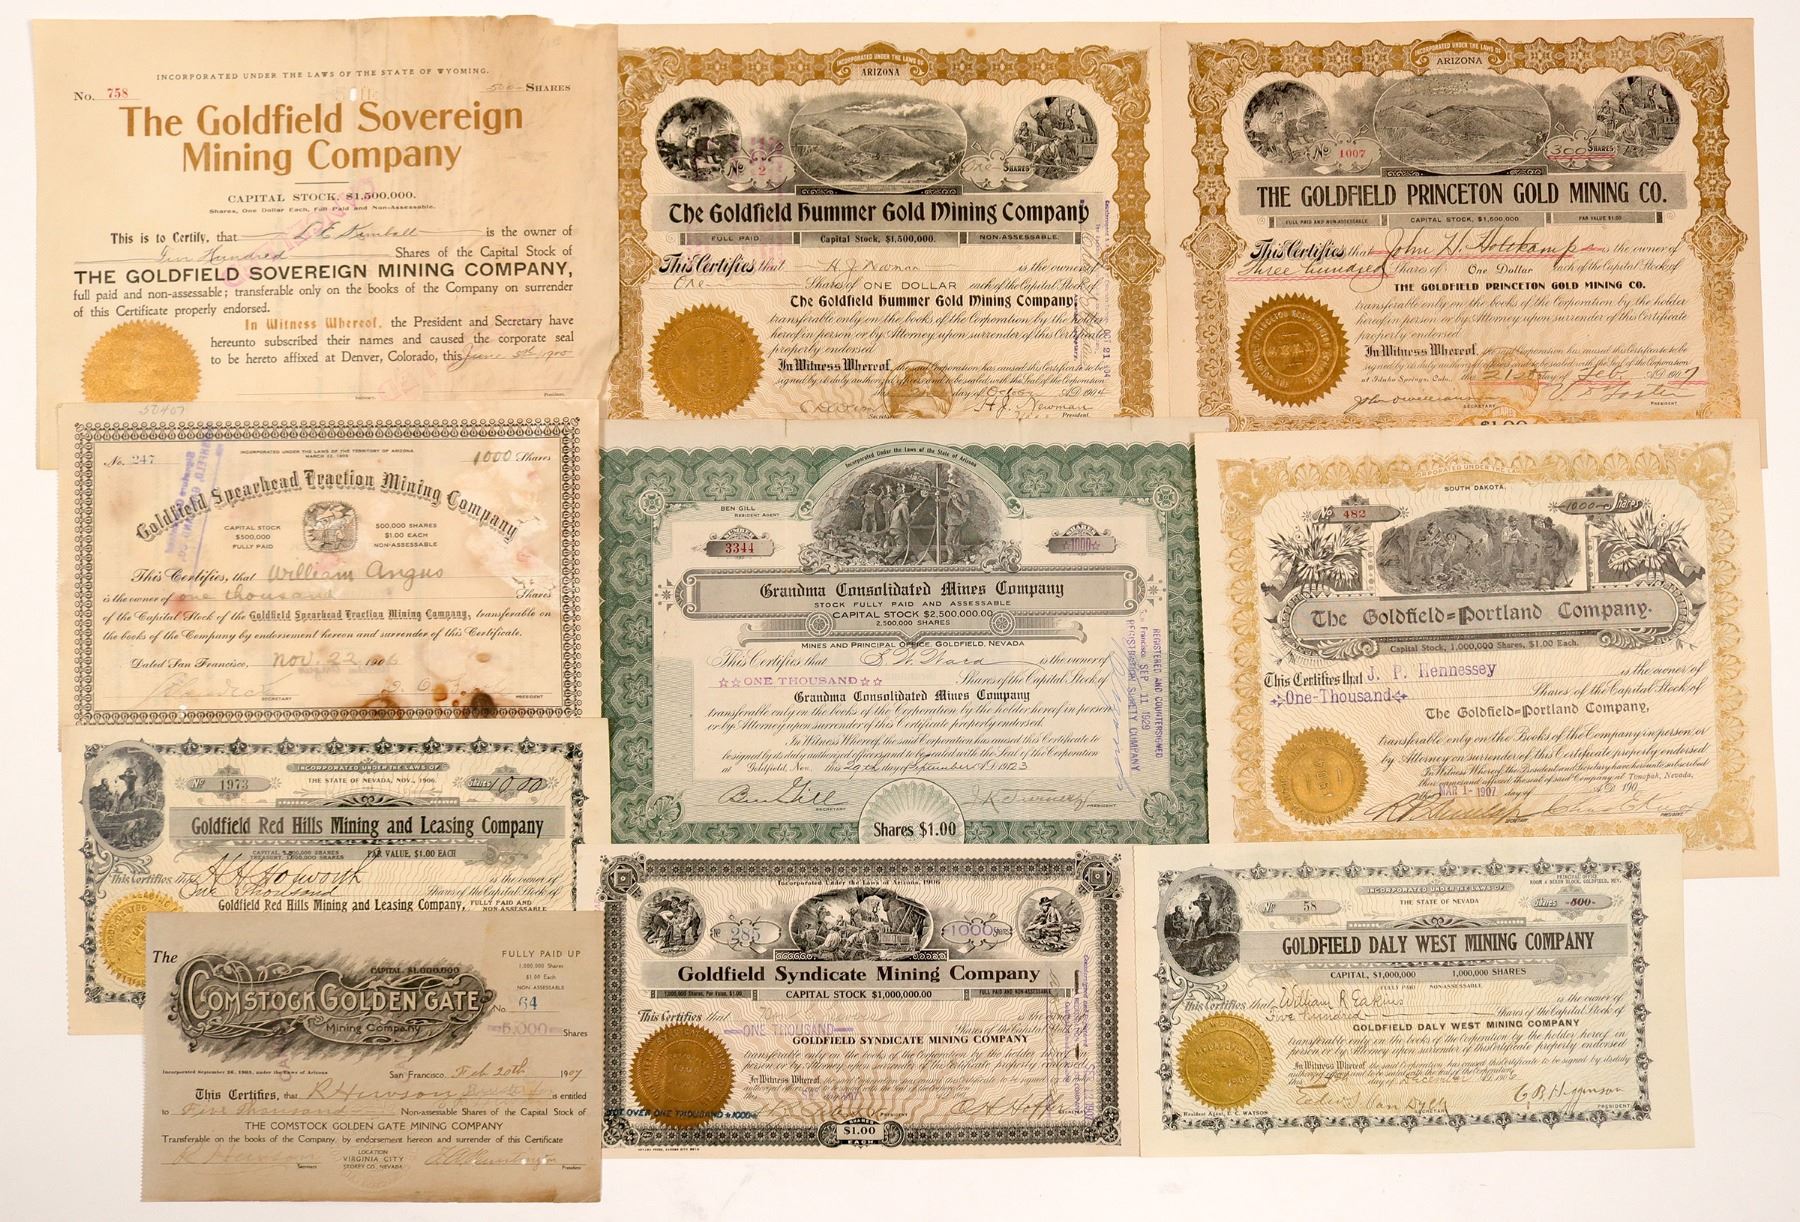 INCORPORATED UNDER THE LAWS OF THE STATE OF WYOMING.
No. 758
500 SHARES
The Goldfield Sovereign
Mining Company
CAPITAL STOCK, $1,500,000.
Shares, One Dollar Each, Full Paid and Non-Assessable.
This is to Certify, that L E Kimball is the owner of
Five Hundred Shares of the Capital Stock of
THE GOLDFIELD SOVEREIGN MINING COMPANY,
full paid and non-assessable; transferable only on the books of the Company on surrender
of this Certificate properly endorsed.
In Witness Whereof, the President and Secretary have
hereunto subscribed their names and caused the corporate seal
to be hereto affixed at Denver, Colorado, this June
Secretary. President.
INCORPORATED UNDER THE LAWS OF
ARIZONA
No 2
One SHARES
The Goldfield Hummer Gold Mining Company
FULL PAID Capital Stock, $1,500,000. NON-ASSESSABLE.
This Certifies that H. J. Newman is the owner of
One Shares of ONE DOLLAR each of the Capital Stock of
The Goldfield Hummer Gold Mining Company,
transferable only on the books of the Corporation by the holder
hereof in person or by Attorney upon surrender of this Certificate
properly endorsed.
In Witness Whereof, the said Corporation has caused this Certificate to be
signed by its duly authorized officers and to be sealed with the Seal of the Corporation
day of October A.D. 1904
H. J. Newman
Secretary President
OCT 21 04
INCORPORATED UNDER THE LAWS OF
ARIZONA
No 1007
300 SHARES
THE GOLDFIELD PRINCETON GOLD MINING CO.
FULL PAID AND NON-ASSESSABLE CAPITAL STOCK, $1,500,000 PAR VALUE $1.00
This Certifies that John H. Holskamp is the owner of
Three hundred Shares of One Dollar each of the Capital Stock of
THE GOLDFIELD PRINCETON GOLD MINING CO.
transferable only on the books of the Corporation by the holder
hereof in person or by Attorney upon surrender of this Certificate
properly endorsed.
In Witness Whereof, the said Corporation has caused this Certificate to be
signed by its duly authorized officers and to be sealed with the Seal of the Corporation
at Idaho Springs, Colo. the 21st day of Feb A.D. 1907
SECRETARY PRESIDENT
$1.00
50407
No. 247
INCORPORATED UNDER THE LAWS OF THE TERRITORY OF ARIZONA
1000 Shares
Goldfield Spearhead Traction Mining Company
CAPITAL STOCK
$500,000
FULLY PAID
500,000 SHARES
$1.00 EACH
NON-ASSESSABLE
This Certifies, that William Angus
is the owner of one thousand Shares
of the Capital Stock of the Goldfield Spearhead Traction Mining Company, transferable on
the books of the Company by endorsement hereon and surrender of this Certificate.
Dated San Francisco, Nov. 22 1906
SECRETARY PRESIDENT
Incorporated Under the Laws of the State of Arizona
BEN GILL
RESIDENT AGENT
NUMBER
3344
SHARES
☆1000☆
Grandma Consolidated Mines Company
STOCK FULLY PAID AND ASSESSABLE
CAPITAL STOCK $2,500,000.00
2,500,000 SHARES
MINES AND PRINCIPAL OFFICE, GOLDFIELD, NEVADA
This Certifies that S. W. Ward is the owner of
☆☆ONE THOUSAND☆☆ Shares of the Capital Stock of
Grandma Consolidated Mines Company
transferable only on the books of the Corporation by the holder hereof in person
or by Attorney upon surrender of this Certificate properly endorsed.
In Witness Whereof, the said Corporation has caused this Certificate to be
signed by its duly authorized officers and to be sealed with the Seal of the Corporation
at Goldfield, Nev. this 29th day of September A.D. 1923
Ben Gill
SECRETARY PRESIDENT
Shares $1.00
REGISTERED AND COUNTERSIGNED
San Francisco SEP 11 1929
REGISTRAR SURETY COMPANY
INCORPORATED UNDER THE LAWS OF
SOUTH DAKOTA.
No 482
1000 Shares
The Goldfield=Portland Company.
Capital Stock, 1,000,000 Shares, $1.00 Each.
This Certifies that J. P. Hennessey is the owner of
One-Thousand Shares of the Capital Stock of
The Goldfield=Portland Company,
transferable only on the Books of the Company in person or
by Attorney on surrender of this Certificate properly endorsed
In Witness Whereof, the President and Secretary have hereunto subscribed
their names and affixed the seal of said Company at Tonopah, Nevada,
this MAR 1- 1907 day of A.D. 190
SECRETARY PRESIDENT
No 1973
INCORPORATED UNDER THE LAWS OF
THE STATE OF NEVADA, NOV., 1906.
Shares 1000
Goldfield Red Hills Mining and Leasing Company
PAR VALUE, $1.00 EACH
This Certifies that H H Hosworth is the owner of
One Thousand Shares of the Capital Stock of
Goldfield Red Hills Mining and Leasing Company, FULLY PAID AND NON-ASSESSABLE
The
CAPITAL $1,000,000
COMSTOCK GOLDEN GATE
Mining Company
FULLY PAID UP
1,000,000 Shares
$1.00 Each
NON ASSESSABLE
No. 64
5,000 Shares
Incorporated September 26, 1905, under the Laws of Arizona
San Francisco, Feb 20th 1907
This Certifies, that R Hewson is entitled
to Five thousand Non-assessable Shares of the Capital Stock of
THE COMSTOCK GOLDEN GATE MINING COMPANY
Transferable on the books of the Company, by endorsement hereon and surrender of this Certificate
LOCATION
VIRGINIA CITY
STOREY CO. NEVADA
R Hewson
Secretary President
Incorporated Under the Laws of Arizona, 1906
No 285
1000 Shares
Goldfield Syndicate Mining Company
1,000,000 Shares, Par Value, $1.00 CAPITAL STOCK $1,000,000.00 FULL PAID AND NON-ASSESSABLE
This Certifies that
ONE THOUSAND Shares of the Capital Stock of
GOLDFIELD SYNDICATE MINING COMPANY
transferable only on the books of the Corporation by the holder hereof in
person or by Attorney upon surrender of this Certificate properly endorsed.
In Witness Whereof, the said Corporation has caused this Certificate to be signed by its duly
NOT OVER ONE THOUSAND $1000$
PRESIDENT SECRETARY
SHARES
$1.00
EACH
No 58
INCORPORATED UNDER THE LAWS OF
THE STATE OF NEVADA
PRINCIPAL OFFICE
Shares -500-
GOLDFIELD DALY WEST MINING COMPANY
CAPITAL, $1,000,000 1,000,000 SHARES
FULLY PAID NON-ASSESSABLE
This Certifies that William R Eakins is the owner of
Five hundred Shares of the Capital Stock of
GOLDFIELD DALY WEST MINING COMPANY
transferable only on the books of the Corporation by the holder hereof in
person or by Attorney upon surrender of this Certificate properly endorsed
In Witness Whereof, the said Corporation has caused this Certificate to be signed by its duly
authorized officers and to be sealed with the seal of the Corporation
Resident Agent, E. C. WATSON
SECRETARY PRESIDENT